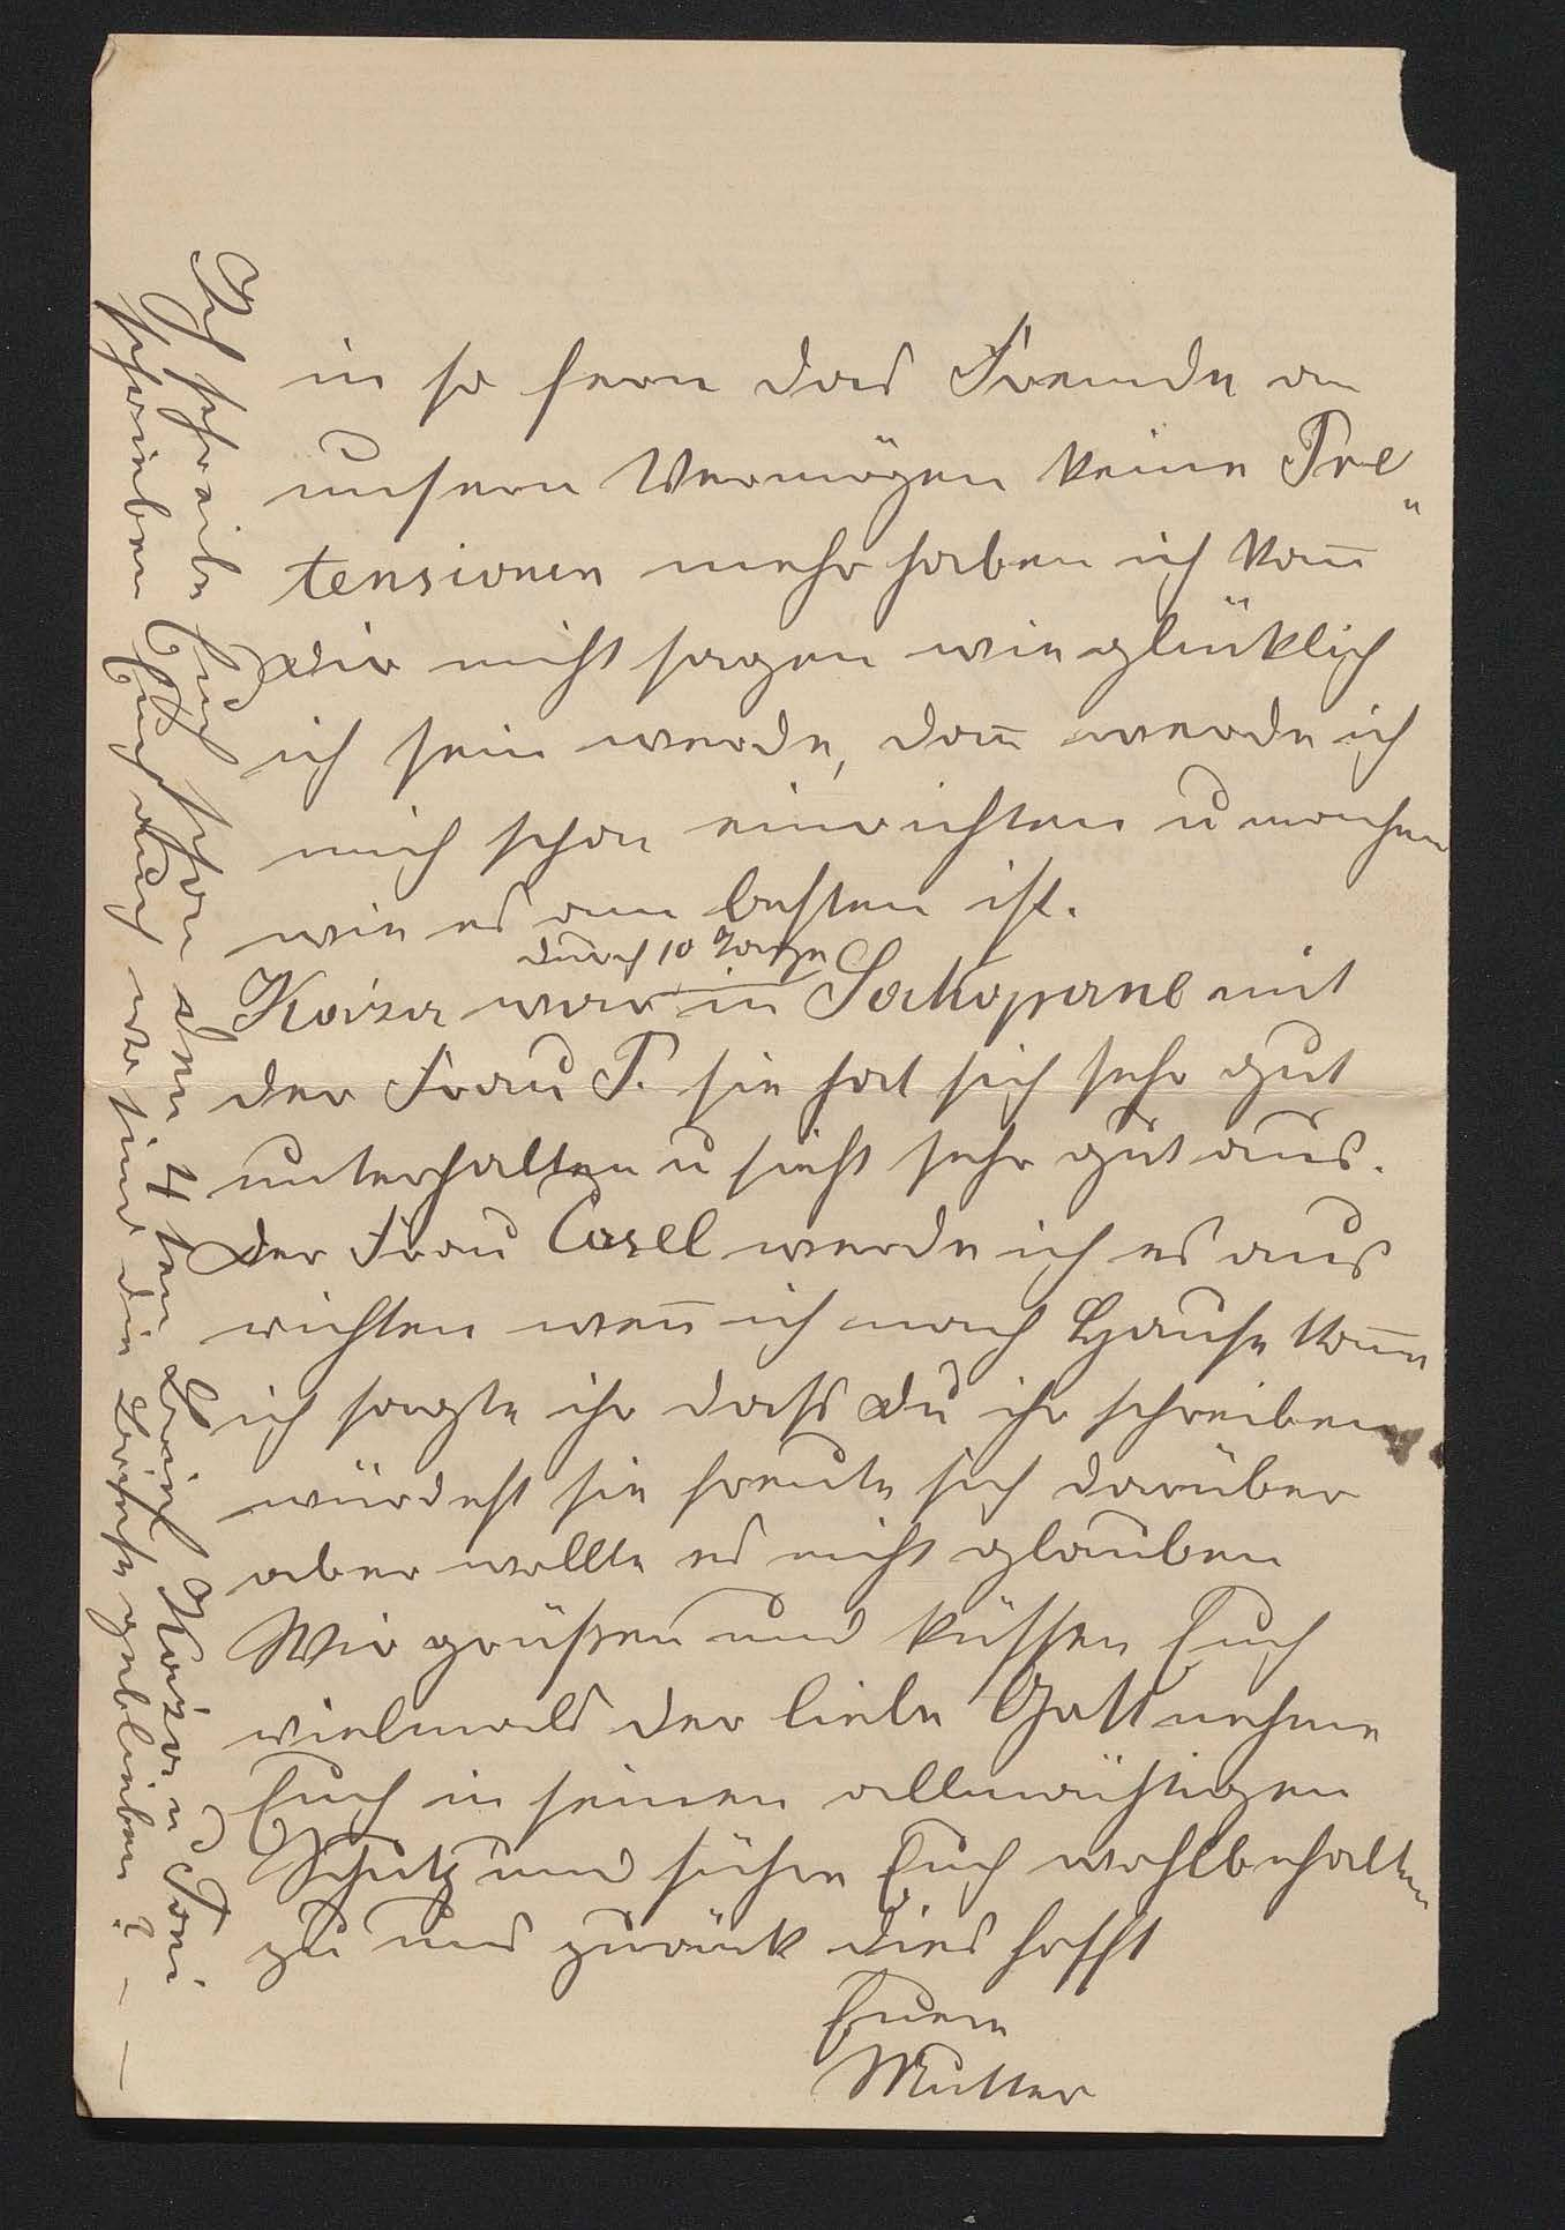 in so fern das Fremde an
unsern Vermögen keine Pre„
tensionen mehr haben ich kan̅
dir nicht sagen wie glücklich
ich sein werde, dan̅ werde ich
mich schon einrichten u machen
wie es am besten ist.
durch 10 Tage
Kaiza war in Sakopane mit
der Frau P. sie hat sich sehr gut
unterhalten u sieht sehr gut aus.
der Frau Casel werde ich es aus
richten wen̅ ich nach Hause kom̅e
ich sagte ihr dass du ihr schreiben
würdest sie freute sich darüber
aber wollte es nicht glauben
Wir grüßen und küssen Euch
vielmals der liebe Gott nehme
Euch in seinen allmächtigen
Schutz und führe Euch wohlbehalten
zu uns zurück dies hofft
Euere
Mutter
Ich schreibe Euch schon den 4ten Brief Kaiza u Toni
schreiben Euch auch wo sind die Briefe geblieben? — —